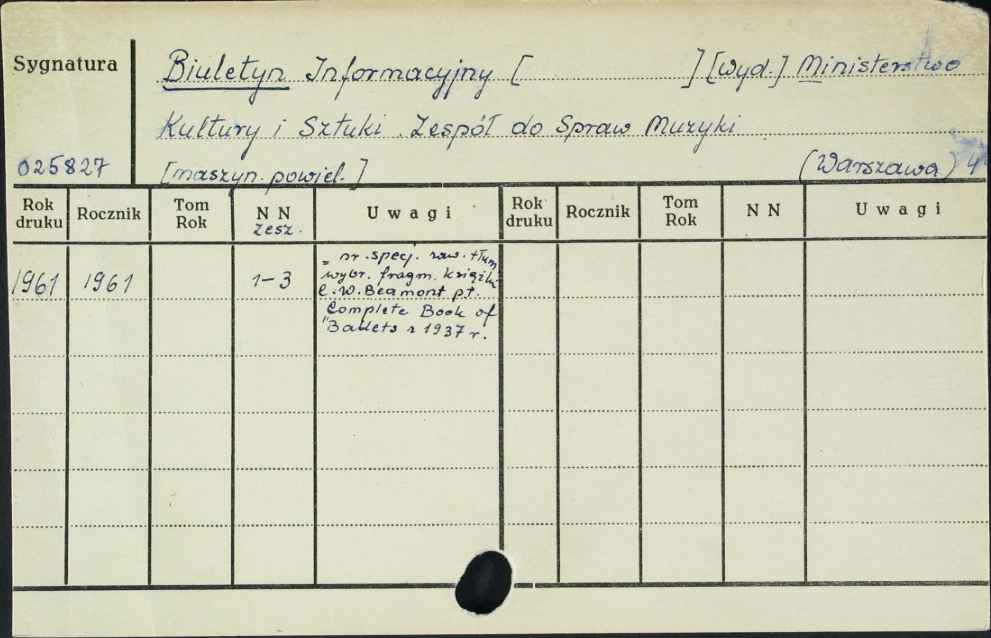 Sygnatura
Biuletyn Informacyjny [ ] [wyd.] Ministerstwo
Kultury i Sztuki. Zespół do Spraw Muzyki
025827 [maszyn. powiel.] (Warszawa) 4°
Rok druku Rocznik Tom Rok NN zesz. Uwagi Rok druku Rocznik Tom Rok NN Uwagi
1961 1961 1-3 nr. specj. zaw. tłum
wybr. fragm. książki
C.W. Beamont pt.
Complete Book of
Ballets z 1937 r.